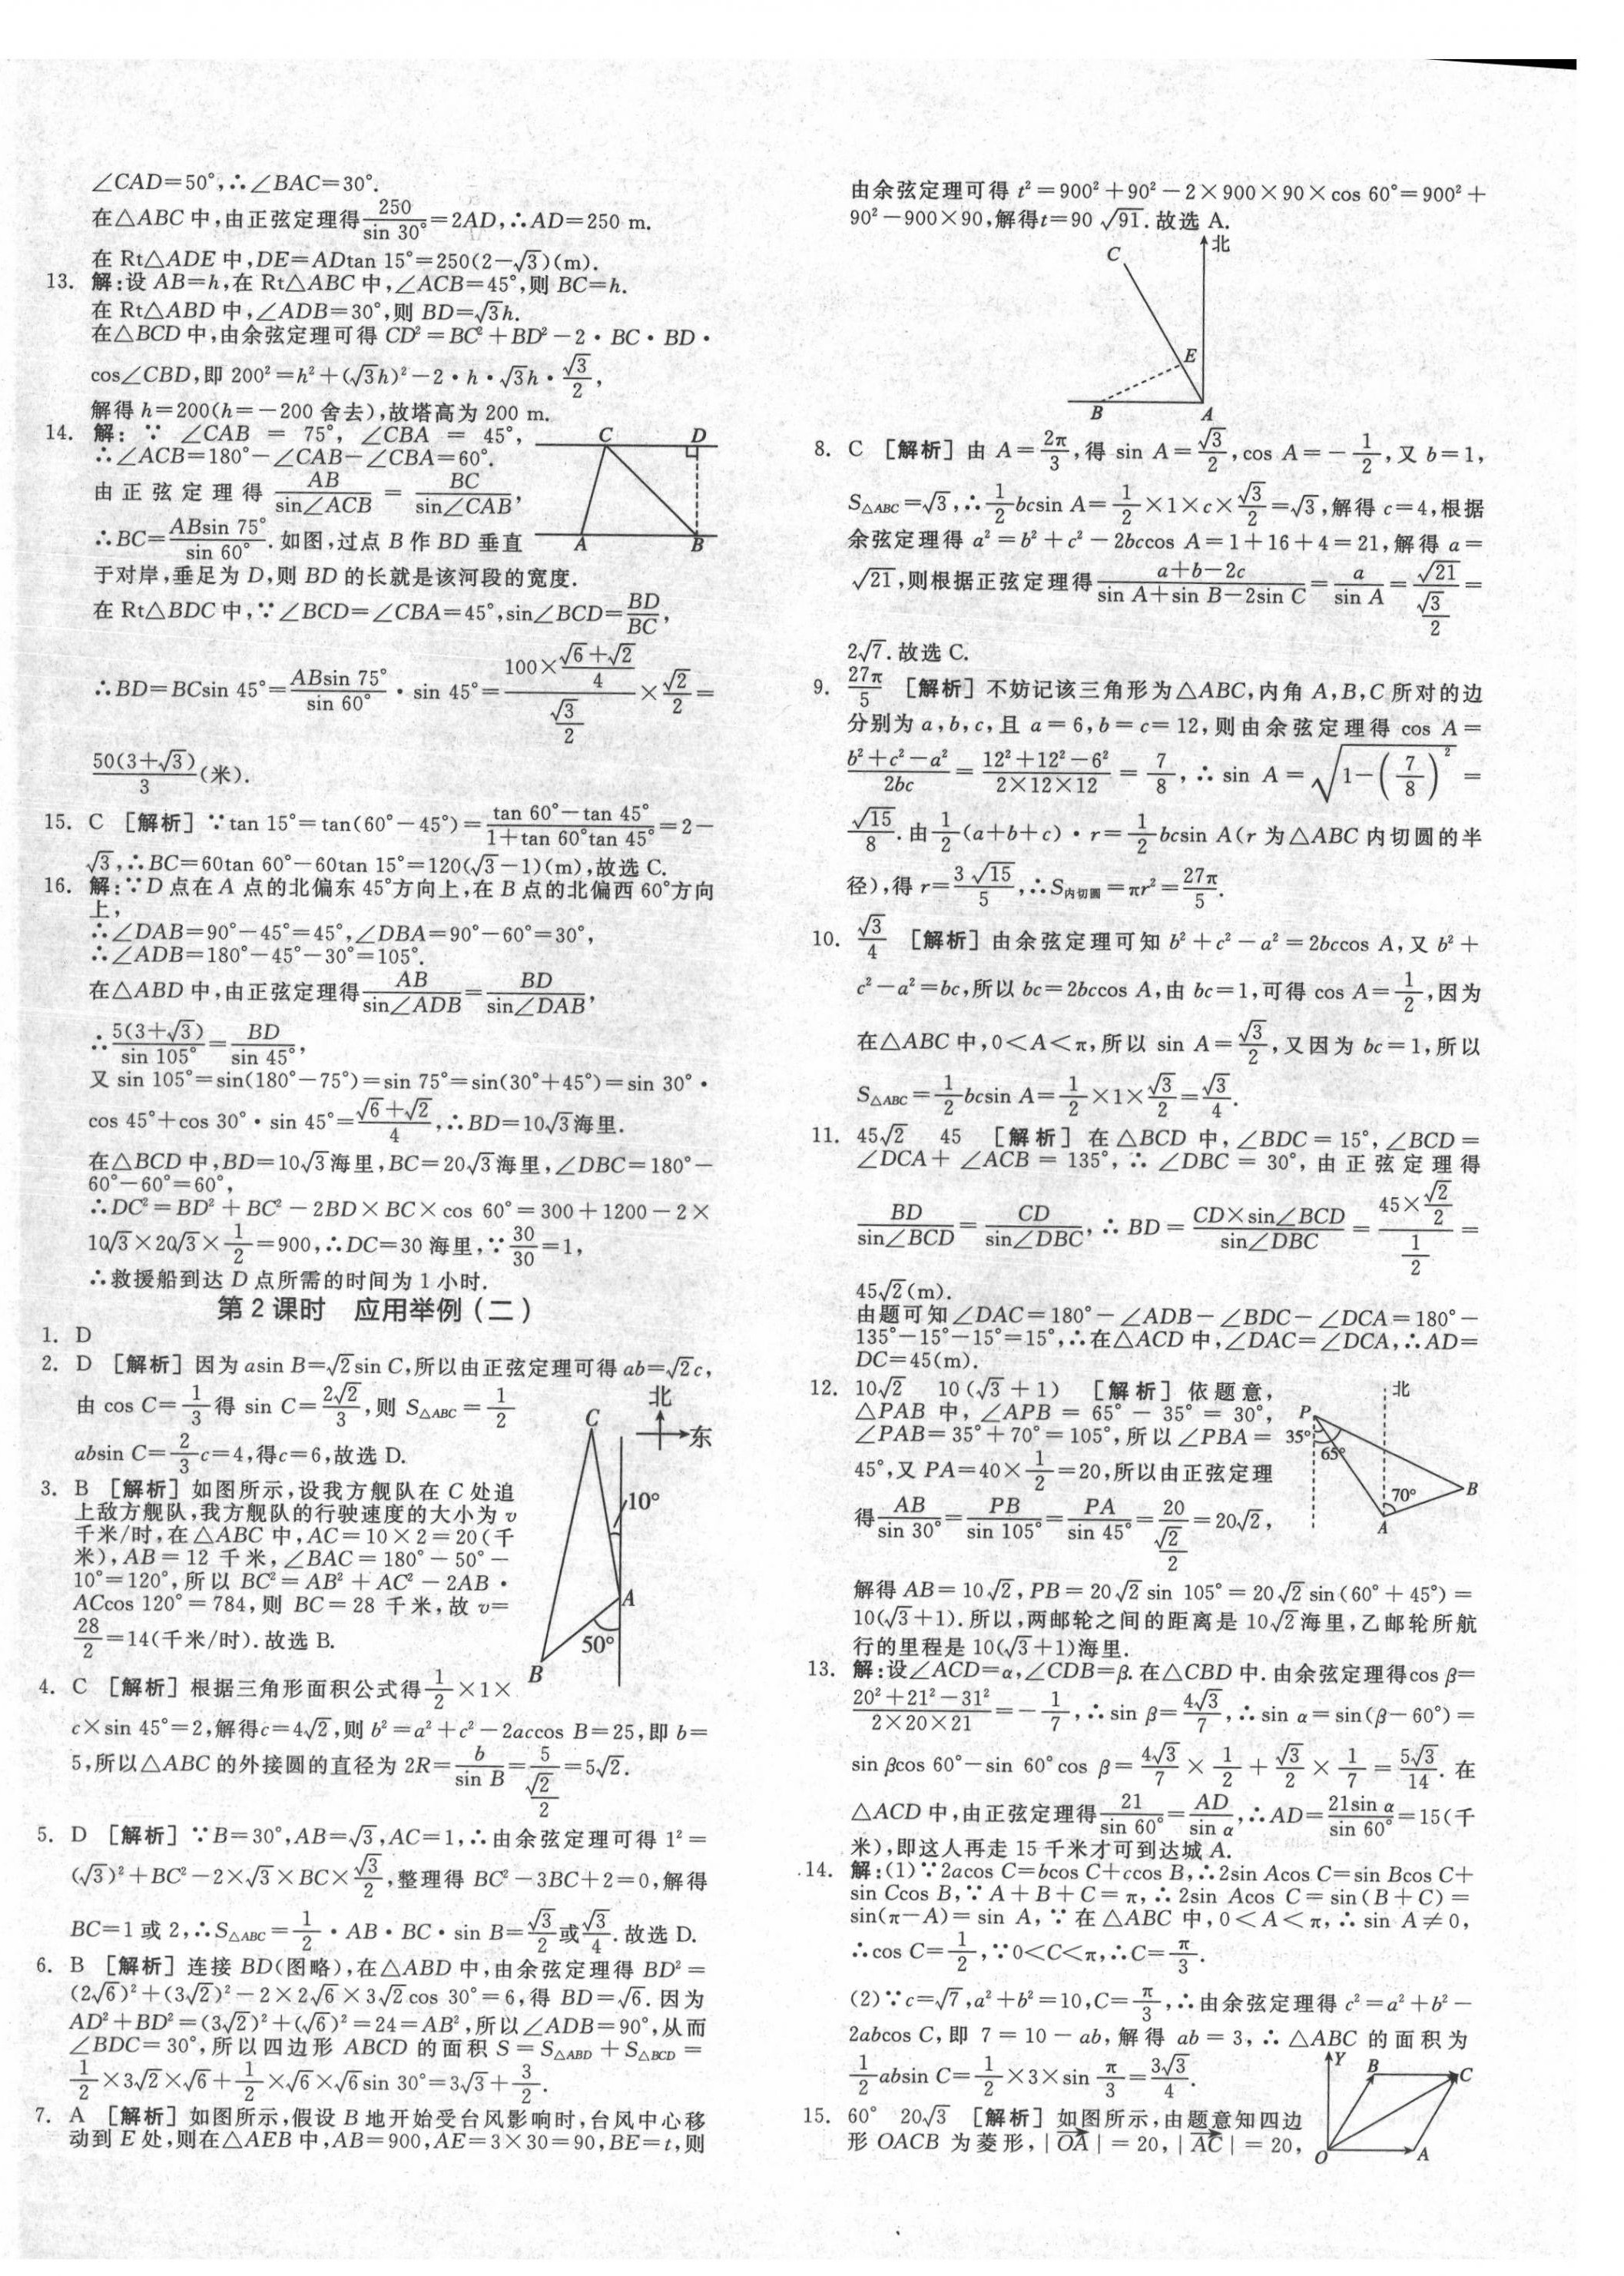 ∠CAD=50°,∴∠BAC=30°.
在△ABC中,由正弦定理得250/sin 30°=2AD,∴AD=250 m.
在Rt△ADE中,DE=ADtan 15°=250(2-√3)(m).
13. 解:设AB=h,在Rt△ABC中,∠ACB=45°,则BC=h.
在Rt△ABD中,∠ADB=30°,则BD=√3h.
在△BCD中,由余弦定理可得CD²=BC²+BD²-2·BC·BD·
cos∠CBD,即200²=h²+(√3h)²-2·h·√3h·√3/2,
解得h=200(h=-200舍去),故塔高为200 m.
14. 解:∵ ∠CAB = 75°, ∠CBA = 45°,
∴∠ACB=180°-∠CAB-∠CBA=60°.
由正弦定理得 AB/sin∠ACB = BC/sin∠CAB,
∴BC=ABsin 75°/sin 60°.如图,过点B作BD垂直
于对岸,垂足为D,则BD的长就是该河段的宽度.
在Rt△BDC中,∵∠BCD=∠CBA=45°,sin∠BCD=BD/BC,
∴BD=BCsin 45°=ABsin 75°/sin 60°·sin 45°=(100×(√6+√2)/4)/(√3/2)×√2/2=
50(3+√3)/3(米).
C D
A B
15. C [解析]∵tan 15°=tan(60°-45°)=(tan 60°-tan 45°)/(1+tan 60°tan 45°)=2-
√3,∴BC=60tan 60°-60tan 15°=120(√3-1)(m),故选C.
16. 解:∵D点在A点的北偏东45°方向上,在B点的北偏西60°方向
上,
∴∠DAB=90°-45°=45°,∠DBA=90°-60°=30°,
∴∠ADB=180°-45°-30°=105°.
在△ABD中,由正弦定理得AB/sin∠ADB=BD/sin∠DAB,
∴5(3+√3)/sin 105°=BD/sin 45°,
又sin 105°=sin(180°-75°)=sin 75°=sin(30°+45°)=sin 30°·
cos 45°+cos 30°·sin 45°=(√6+√2)/4,∴BD=10√3海里.
在△BCD中,BD=10√3海里,BC=20√3海里,∠DBC=180°-
60°-60°=60°,
∴DC²=BD²+BC²-2BD×BC×cos 60°=300+1200-2×
10√3×20√3×1/2=900,∴DC=30海里,∵30/30=1,
∴救援船到达D点所需的时间为1小时.
第2课时 应用举例(二)
1. D
2. D [解析]因为asin B=√2sin C,所以由正弦定理可得ab=√2c,
由cos C=1/3得sin C=2√2/3,则S△ABC=1/2
absin C=2/3c=4,得c=6,故选D.
3. B [解析]如图所示,设我方舰队在C处追
上敌方舰队,我方舰队的行驶速度的大小为v
千米/时,在△ABC中,AC=10×2=20(千
米),AB=12千米,∠BAC=180°-50°-
10°=120°,所以BC²=AB²+AC²-2AB·
ACcos 120°=784,则BC=28千米,故v=
28/2=14(千米/时).故选B.
北
东
C
10°
A
50°
B
4. C [解析]根据三角形面积公式得1/2×1×
c×sin 45°=2,解得c=4√2,则b²=a²+c²-2accos B=25,即b=
5,所以△ABC的外接圆的直径为2R=b/sin B=5/(√2/2)=5√2.
5. D [解析]∵B=30°,AB=√3,AC=1,∴由余弦定理可得1²=
(√3)²+BC²-2×√3×BC×√3/2,整理得BC²-3BC+2=0,解得
BC=1或2,∴S△ABC=1/2·AB·BC·sin B=√3/2或√3/4.故选D.
6. B [解析]连接BD(图略),在△ABD中,由余弦定理得BD²=
(2√6)²+(3√2)²-2×2√6×3√2cos 30°=6,得BD=√6.因为
AD²+BD²=(3√2)²+(√6)²=24=AB²,所以∠ADB=90°,从而
∠BDC=30°,所以四边形ABCD的面积S=S△ABD+S△BCD=
1/2×3√2×√6+1/2×√6×√6sin 30°=3√3+3/2.
7. A [解析]如图所示,假设B地开始受台风影响时,台风中心移
动到E处,则在△AEB中,AB=900,AE=3×30=90,BE=t,则
由余弦定理可得t²=900²+90²-2×900×90×cos 60°=900²+
90²-900×90,解得t=90√91.故选A.
北
C
E
B A
8. C [解析]由A=2π/3,得sin A=√3/2,cos A=-1/2,又b=1,
S△ABC=√3,∴1/2bcsin A=1/2×1×c×√3/2=√3,解得c=4,根据
余弦定理得a²=b²+c²-2bccos A=1+16+4=21,解得a=
√21,则根据正弦定理得(a+b-2c)/(sin A+sin B-2sin C)=a/sin A=√21/(√3/2)=
2√7.故选C.
9. 27π/5 [解析]不妨记该三角形为△ABC,内角A,B,C所对的边
分别为a,b,c,且a=6,b=c=12,则由余弦定理得cos A=
(b²+c²-a²)/2bc=(12²+12²-6²)/(2×12×12)=7/8,∴sin A=√(1-(7/8)²)=
√15/8.由1/2(a+b+c)·r=1/2bcsin A(r为△ABC内切圆的半
径),得r=3√15/5,∴S内切圆=πr²=27π/5.
10. √3/4 [解析]由余弦定理可知b²+c²-a²=2bccos A,又b²+
c²-a²=bc,所以bc=2bccos A,由bc=1,可得cos A=1/2,因为
在△ABC中,0<A<π,所以sin A=√3/2,又因为bc=1,所以
S△ABC=1/2bcsin A=1/2×1×√3/2=√3/4.
11. 45√2 45 [解析]在△BCD中,∠BDC=15°,∠BCD=
∠DCA+∠ACB=135°,∴∠DBC=30°,由正弦定理得
BD/sin∠BCD=CD/sin∠DBC,∴BD=CD×sin∠BCD/sin∠DBC=(45×√2/2)/(1/2)=
45√2(m).
由题可知∠DAC=180°-∠ADB-∠BDC-∠DCA=180°-
135°-15°-15°=15°,∴在△ACD中,∠DAC=∠DCA,∴AD=
DC=45(m).
12. 10√2 10(√3+1) [解析]依题意,
△PAB中,∠APB=65°-35°=30°,
∠PAB=35°+70°=105°,所以∠PBA=
45°,又PA=40×1/2=20,所以由正弦定理
得AB/sin 30°=PB/sin 105°=PA/sin 45°=20/(√2/2)=20√2,
解得AB=10√2,PB=20√2sin 105°=20√2sin(60°+45°)=
10(√3+1).所以,两邮轮之间的距离是10√2海里,乙邮轮所航
行的里程是10(√3+1)海里.
北
P
35°
65°
B
70°
A
13. 解:设∠ACD=α,∠CDB=β.在△CBD中.由余弦定理得cos β=
(20²+21²-31²)/(2×20×21)=-1/7,∴sin β=4√3/7,∴sin α=sin(β-60°)=
sin βcos 60°-sin 60°cos β=4√3/7×1/2+√3/2×1/7=5√3/14.在
△ACD中,由正弦定理得21/sin 60°=AD/sin α,∴AD=21sin α/sin 60°=15(千
米),即这人再走15千米才可到达城A.
14. 解:(1)∵2acos C=bcos C+ccos B,∴2sin Acos C=sin Bcos C+
sin Ccos B,∵A+B+C=π,∴2sin Acos C=sin(B+C)=
sin(π-A)=sin A,∵在△ABC中,0<A<π,∴sin A≠0,
∴cos C=1/2,∵0<C<π,∴C=π/3.
(2)∵c=√7,a²+b²=10,C=π/3,∴由余弦定理得c²=a²+b²-
2abcos C,即7=10-ab,解得ab=3,∴△ABC的面积为
1/2absin C=1/2×3×sin π/3=3√3/4.
15. 60° 20√3 [解析]如图所示,由题意知四边
形OACB为菱形,|OA|=20,|AC|=20,
Y
B C
O A